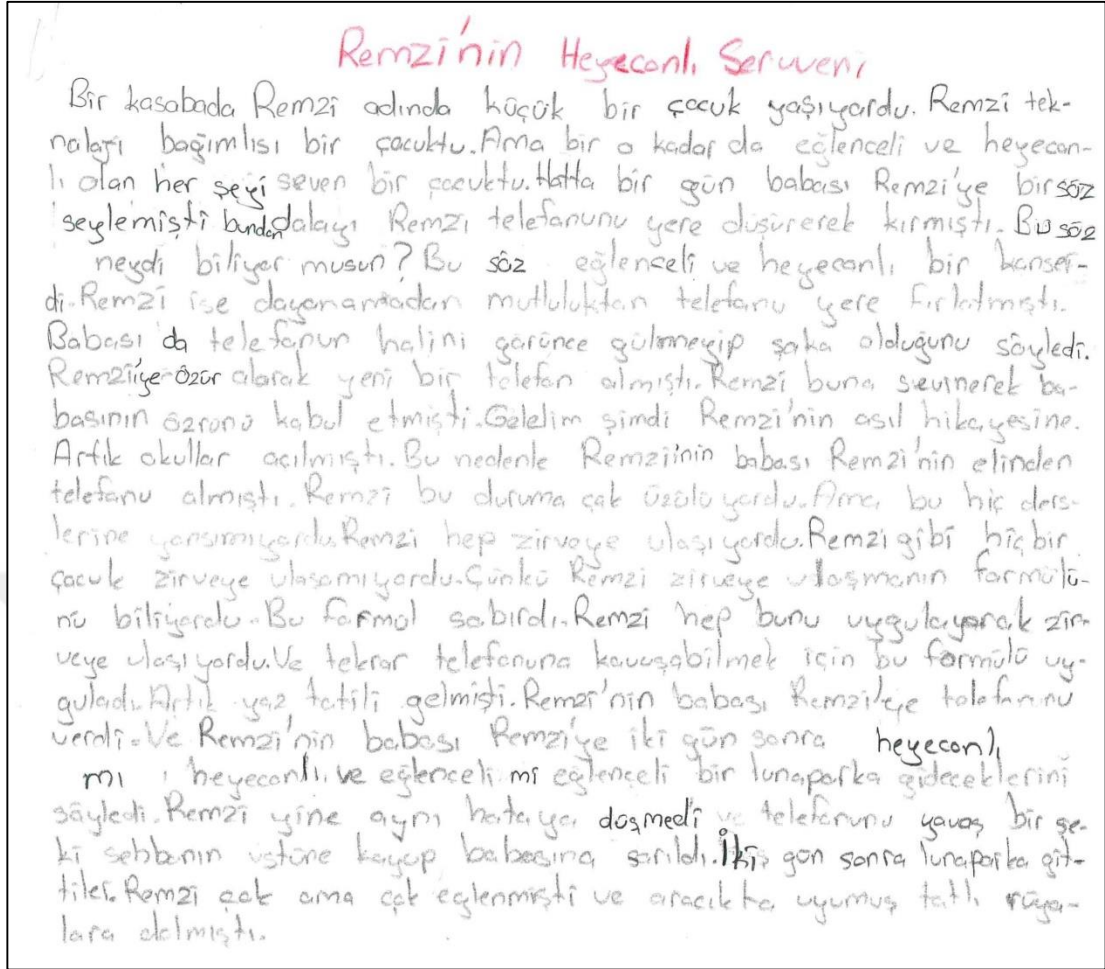 Remzi'nin Heyecanlı Serüveni
Bir kasabada Remzi adında küçük bir çocuk yaşıyordu. Remzi tek-
noloji bağımlısı bir çocuktu. Ama bir o kadar da eğlenceli ve heyecan-
lı olan her şeyi seven bir çocuktu. Hatta bir gün babası Remzi'ye bir söz
seylemişti bundan dolayı Remzi telefonunu yere düşürerek kırmıştı. Bu söz
neydi biliyor musun? Bu söz eğlenceli ve heyecanlı bir konser-
di. Remzi ise dayanamadan mutluluktan telefonu yere fırlatmıştı.
Babası da telefonun halini görünce gülmeyip şaka olduğunu söyledi.
Remzi'ye özür olarak yeni bir telefon almıştı. Remzi buna sevinerek ba-
basının özrünü kabul etmişti. Gelelim şimdi Remzi'nin asıl hikayesine.
Artık okullar açılmıştı. Bu nedenle Remzi'nin babası Remzi'nin elinden
telefonu almıştı. Remzi bu duruma çok üzülüyordu. Ama bu hiç ders-
lerine yansımıyordu. Remzi hep zirveye ulaşıyordu. Remzi gibi hiçbir
çocuk zirveye ulaşamıyordu. Çünkü Remzi zirveye ulaşmanın formülü-
nü biliyordu. Bu formül sabırdı. Remzi hep bunu uygulayarak zir-
veye ulaşıyordu. Ve tekrar telefonuna kavuşabilmek için bu formülü uy-
guladı. Artık yaz tatili gelmişti. Remzi'nin babası Remzi'ye telefonunu
verdi. Ve Remzi'nin babası Remzi'ye iki gün sonra heyecanlı
mı heyecanlı ve eğlenceli mi eğlenceli bir lunaparka gideceklerini
söyledi. Remzi yine aynı hataya düşmedi ve telefonunu yavaş bir şe-
ki sehbanın üstüne koyup babasına sarıldı. İki gün sonra lunaparka git-
tiler. Remzi çok ama çok eğlenmişti ve aracıkta uyumuş tatlı rüya-
lara dalmıştı.